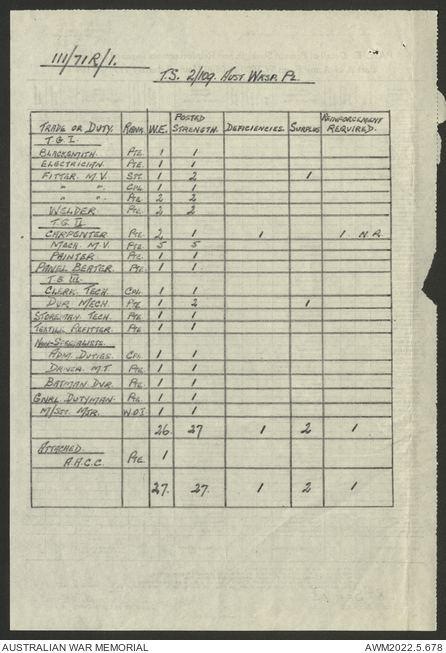 111/71R/1.
T.S. 2/109. Aust Wksp. Pl.
TRADE OR DUTY. RANK. W.E. POSTED STRENGTH. DEFICIENCIES SURPLUS REINFORCEMENT REQUIRED.
T.G. I.
BLACKSMITH. Pte. 1 1
ELECTRICIAN. Pte. 1 1
FITTER M.V. Sgt. 1 2 1
" " Cpl 1 1
" " Pte 2 2
WELDER Pte. 2 2
T.G. II.
CARPENTER Pte. 2 1 1 1 N.R.
MECH. M.V. Pte. 5 5
PAINTER Pte. 1 1
PANEL BEATER. Pte. 1 1
T.G. III.
CLERK. TECH. Cpl. 1 1
DVR MECH. Pte 1 2 1
STOREMAN. TECH. Pte 1 1
TEXTILE REFITTER. Pte 1 1
NON-SPECIALISTS.
ADM. DUTIES. Cpl. 1 1
DRIVER. M.T. Pte 1 1
BATMAN. DVR. Pte. 1 1
GNRL DUTYMAN. Pte 1 1
M/SGT. MTR. W.O.I 1 1
26. 27 1 2 1
ATTACHED.
A.A.C.C. Pte 1
27. 27. 1 2 1
AUSTRALIAN WAR MEMORIAL AWM2022.5.678